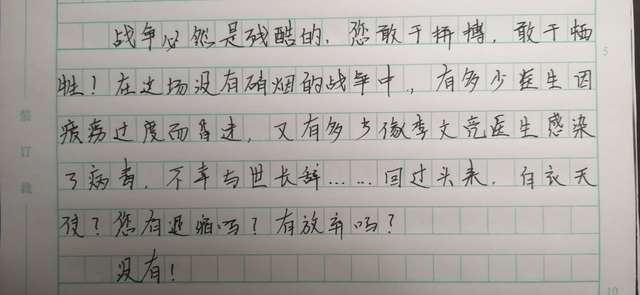 战争必然是残酷的，您敢于拼搏，敢于牺
牲！在这场没有硝烟的战争中，有多少医生因
疲劳过度而昏迷，又有多少像李文亮医生感染
了病毒，不幸与世长辞……回过头来，白衣天
使？您有退缩吗？有放弃吗？
没有！
装订线
5
10